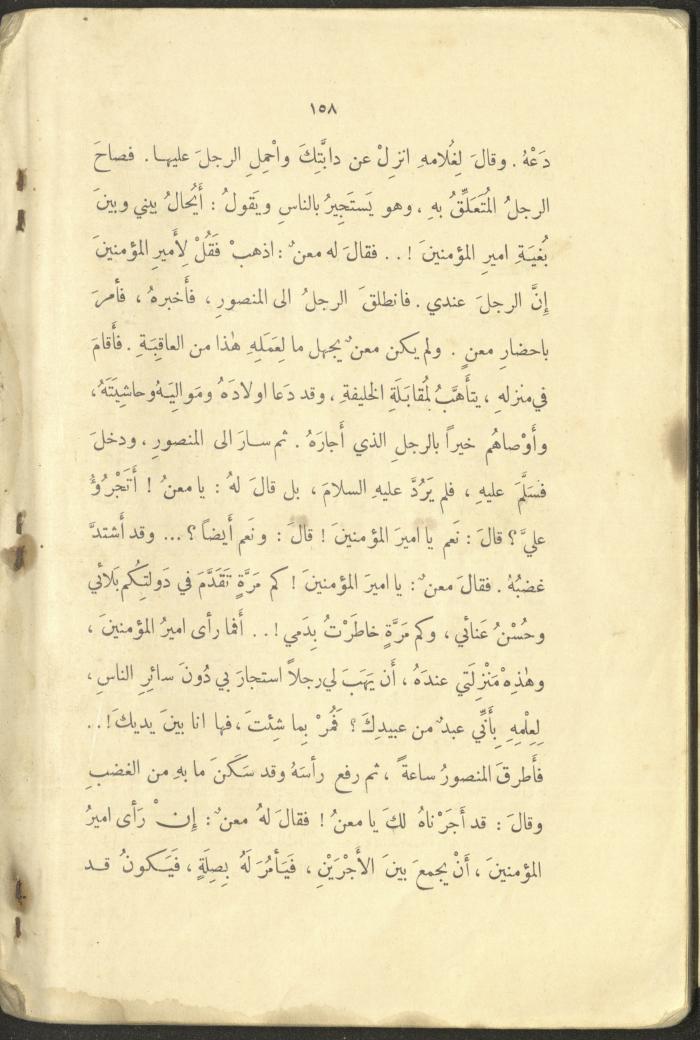 ١٥٨
دَعْهُ . وقالَ لِغُلامهِ انزِلْ عن دابَّتِكَ واْحمِلِ الرجلَ عليها . فصاحَ
الرجلُ المُتَعَلِّقُ بهِ ، وهو يَستَجِيرُ بالناسِ ويَقولُ : أَيُحالُ بيني وبينَ
بُغيَةِ اميرِ المؤمنينَ ! . . فقالَ له معنٌ : اذهبْ فَقُلْ لِأَميرِ المؤمنينَ
إِنَّ الرجلَ عندي . فانطلقَ الرجلُ الى المنصورِ ، فأَخبرهُ ، فأمرَ
باحضارِ معنٍ . ولم يكن معنٌ يجهل ما لِعَمَلِهِ هٰذا من العاقِبَةِ . فأَقامَ
في منزلهِ ، يتأَهَّبُ لِمُقابَلَةِ الخليفةِ ، وقد دَعا اولادَهُ ومَوالِيَهُ وحاشِيَتَهُ ،
وأَوْصاهُم خيراً بالرجلِ الذي أَجارَهُ . ثم سارَ الى المنصورِ ، ودخلَ
فسَلَّمَ عليهِ ، فلم يَرُدَّ عليهِ السلامَ ، بل قالَ لهُ : يا معنُ ! أَتَجْرُؤُ
عليَّ ؟ قالَ : نَعم يا اميرَ المؤمنينَ ! قالَ : ونَعم أَيضاً ؟ ... وقد أشتدَّ
غضبُهُ . فقالَ معنٌ : يا اميرَ المؤمنينَ ! كم مَرَّةٍ تَقَدَّمَ في دَولتِكُم بَلائي
وحُسْنُ عَنائي ، وكم مَرَّةٍ خاطَرْتُ بِدَمي ! . . أَفما رأى اميرُ المؤمنينَ ،
وهٰذِهْ مَنْزِلَتي عندَهُ ، أَن يَهَبَ لي رجلاً استجارَ بي دُونَ سائِرِ الناسِ ،
لِعِلْمِهِ بِأَنِّي عبدٌ من عبيدِكَ ؟ فَمُرْ بِما شِئتَ ، فها انا بينَ يديكَ ! . .
فأَطرقَ المنصورُ ساعةً ، ثم رفع رأسَهُ وقد سَكَنَ ما بهِ من الغضبِ
وقالَ : قد أَجَرْناهُ لكَ يا معنُ ! فقالَ لهُ معنٌ : إِنْ رَأى اميرُ
المؤمنينَ ، أَنْ يجمعَ بينَ الأَجْرَيْنِ ، فَيَأمُرَ لَهُ بِصِلَةٍ ، فَيَكونُ قد